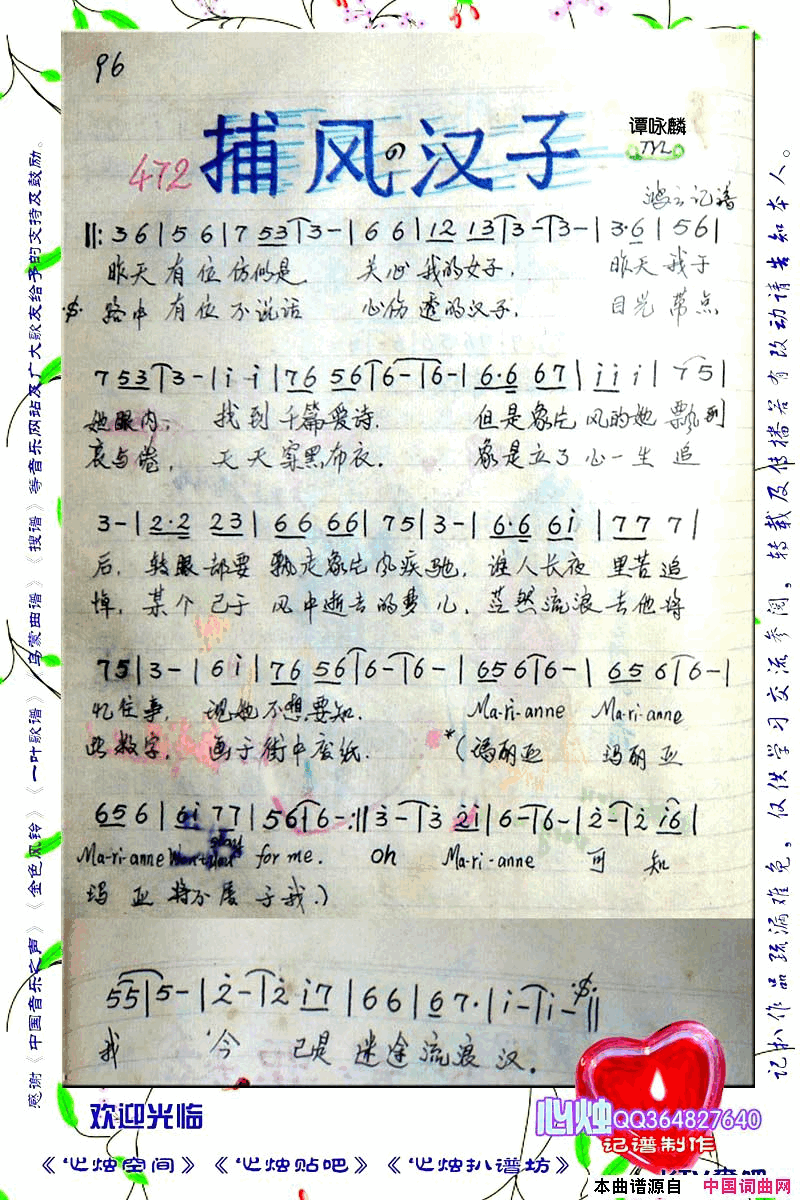 96
捕风の汉子
谭咏麟
TYL
472
鸿云记谱
‖: 3 6 | 5 6 | 7 53 | 3 - | 6 6 | 12 13 | 3 - | 3 - | 3·6 | 5 6 |
昨天 有位 仿似是 关心 我的女子, 昨天 我于
路中 有位 不说话 心伤 透的汉子, 目光 带点
7 53 | 3 - | i i | 76 56 | 6 - | 6 - | 6·6 67 | i i i | 7 5 |
她眼内, 找到 千篇爱诗. 但是象片 风的她 飘到
哀与倦, 天天 穿黑布衣. 象是立了 心一生 追
3 - | 2·2 23 | 66 66 | 75 | 3 - | 6·6 6i | 77 7 |
后, 转眼都要 飘走象片风疾驰, 谁人长夜 里苦追
悼, 某个已于 风中逝去的梦儿, 茫然流浪 去他将
75 | 3 - | 6 i | 76 56 | 6 - | 6 - | 65 6 | 6 - | 65 6 | 6 - |
忆往事, 现她不想要知. Ma-ri-anne Ma-ri-anne
此数字, 画于街中废纸. *(玛丽亚 玛丽亚
65 6 | 6i 77 | 56 | 6 - :‖ 3 - | 3 2i | 6 - | 6 - | 2 - | 2 i6 |
Ma-ri-anne Won't stay for me. Oh Ma-ri-anne 可 知
玛 亚 将不属于我.)
55 | 5 - | 2 - | 2 i7 | 66 | 67· | i - | i - ‖
我 今 已是 迷途流浪汉.
感谢《中国音乐之声》《金色风铃》《一叶歌谱》《乌蒙曲谱》《搜谱》等音乐网站及广大歌友给予的支持及鼓励。
记扒作品疏漏难免，仅供学习交流参阅，转载及传播若有改动请告知本人。
欢迎光临
心烛QQ364827640
记谱制作
《心烛空间》《心烛贴吧》《心烛扒谱坊》
本曲谱源自 中国词曲网